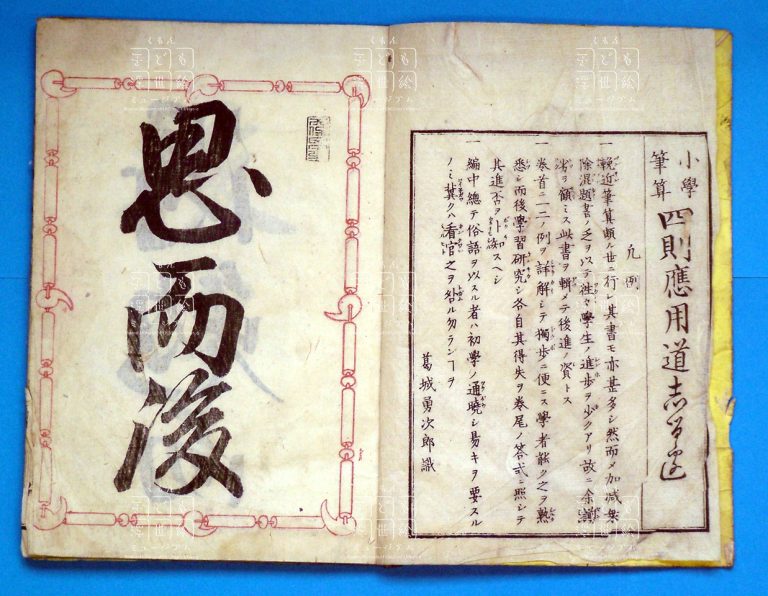 小學
筆算
四則應用道志るべ
凡例
一 輓近筆算頗ル世ニ行レ其書モ亦甚多シ然而〆加減乗
除混題書ノ乏ヲ以テ往々學生ノ進歩ヲ少クアリ故ニ余譾
劣ヲ顧ミス此書ヲ輯メテ後進ノ資トス
一 巻首ニ一二ノ例ヲ詳解シテ獨歩ニ便ニス學者能ク之ヲ熟
悉シ而後學習研究シ各自其得失ヲ巻尾ノ答式ニ照シテ
其進否ヲ卜知スヘシ
一 編中總テ俗語ヲ以スル者ハ初學ノ通曉シ易キヲ要スル
ノミ冀クハ看官之ヲ咎ル勿ランヿヲ
葛城勇次郎識
思而後
くもん
子ども
浮世絵
ミュージアム